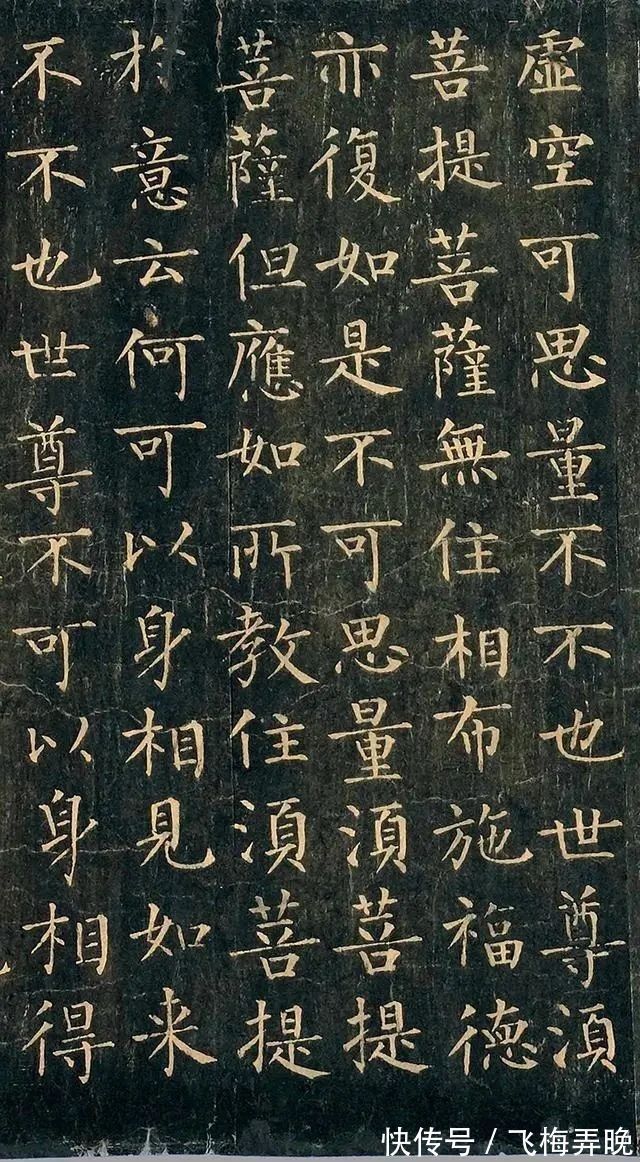 虛空可思量不不也世尊湏
菩提菩薩無住相布施福德
亦復如是不可思量湏菩提
菩薩但應如所教住湏菩提
扵意云何可以身相見如来
不不也世尊不可以身相得
快传号／飞梅弄晚